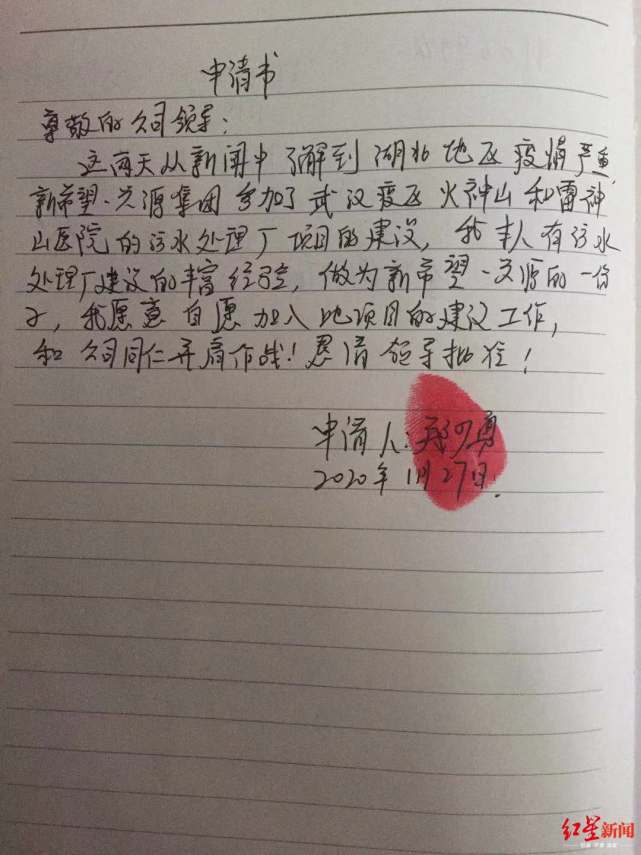 申请书
尊敬的公司领导：
这两天从新闻中了解到湖北地区疫情严重,
新希望·兴源集团参加了武汉疫区火神山和雷神
山医院的污水处理厂项目的建设，我本人有污水
处理厂建设的丰富经验，做为新希望·兴源的一份
子，我愿意自愿加入此项目的建设工作，
和公司同仁并肩作战！恳请领导批准！
申请人：勇
2020年1月27日.
红星新闻